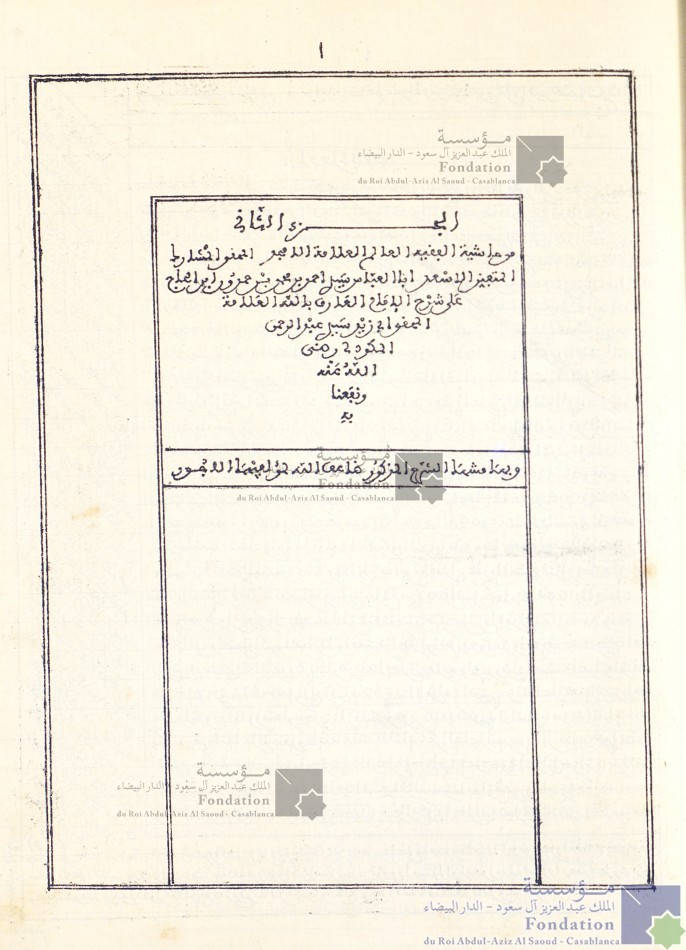 ١
الجزء الثاني
من حاشية الفقيه العالم العلامة المحقق المشارك
أبا العباس سيدي أحمد بن محمد بن حمدون ابن الحاج
على شرح الإمام العارف بالله العلامة
المحقق أبي زيد سيدي عبد الرحمن
المكودي رضي
الله عنه
ونفعنا
به
وبهامشها الشرح المذكور ضاعف الله لمؤلفيهما الأجور
مؤسسة
الملك عبد العزيز آل سعود - الدار البيضاء
Fondation
du Roi Abdul-Aziz Al Saoud - Casablanca
مؤسسة
الملك عبد العزيز آل سعود - الدار البيضاء
Fondation
du Roi Abdul-Aziz Al Saoud - Casablanca
مؤسسة
الملك عبد العزيز آل سعود - الدار البيضاء
Fondation
du Roi Abdul-Aziz Al Saoud - Casablanca
مؤسسة
الملك عبد العزيز آل سعود - الدار البيضاء
Fondation
du Roi Abdul-Aziz Al Saoud - Casablanca